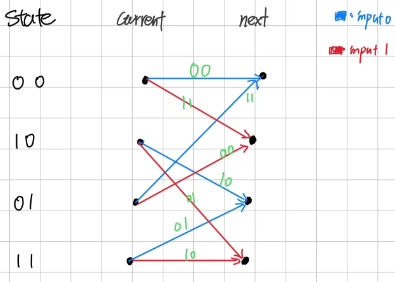 State Current next input 0
input 1
00 00
11 11
10 00
10
01 01
01
11 10